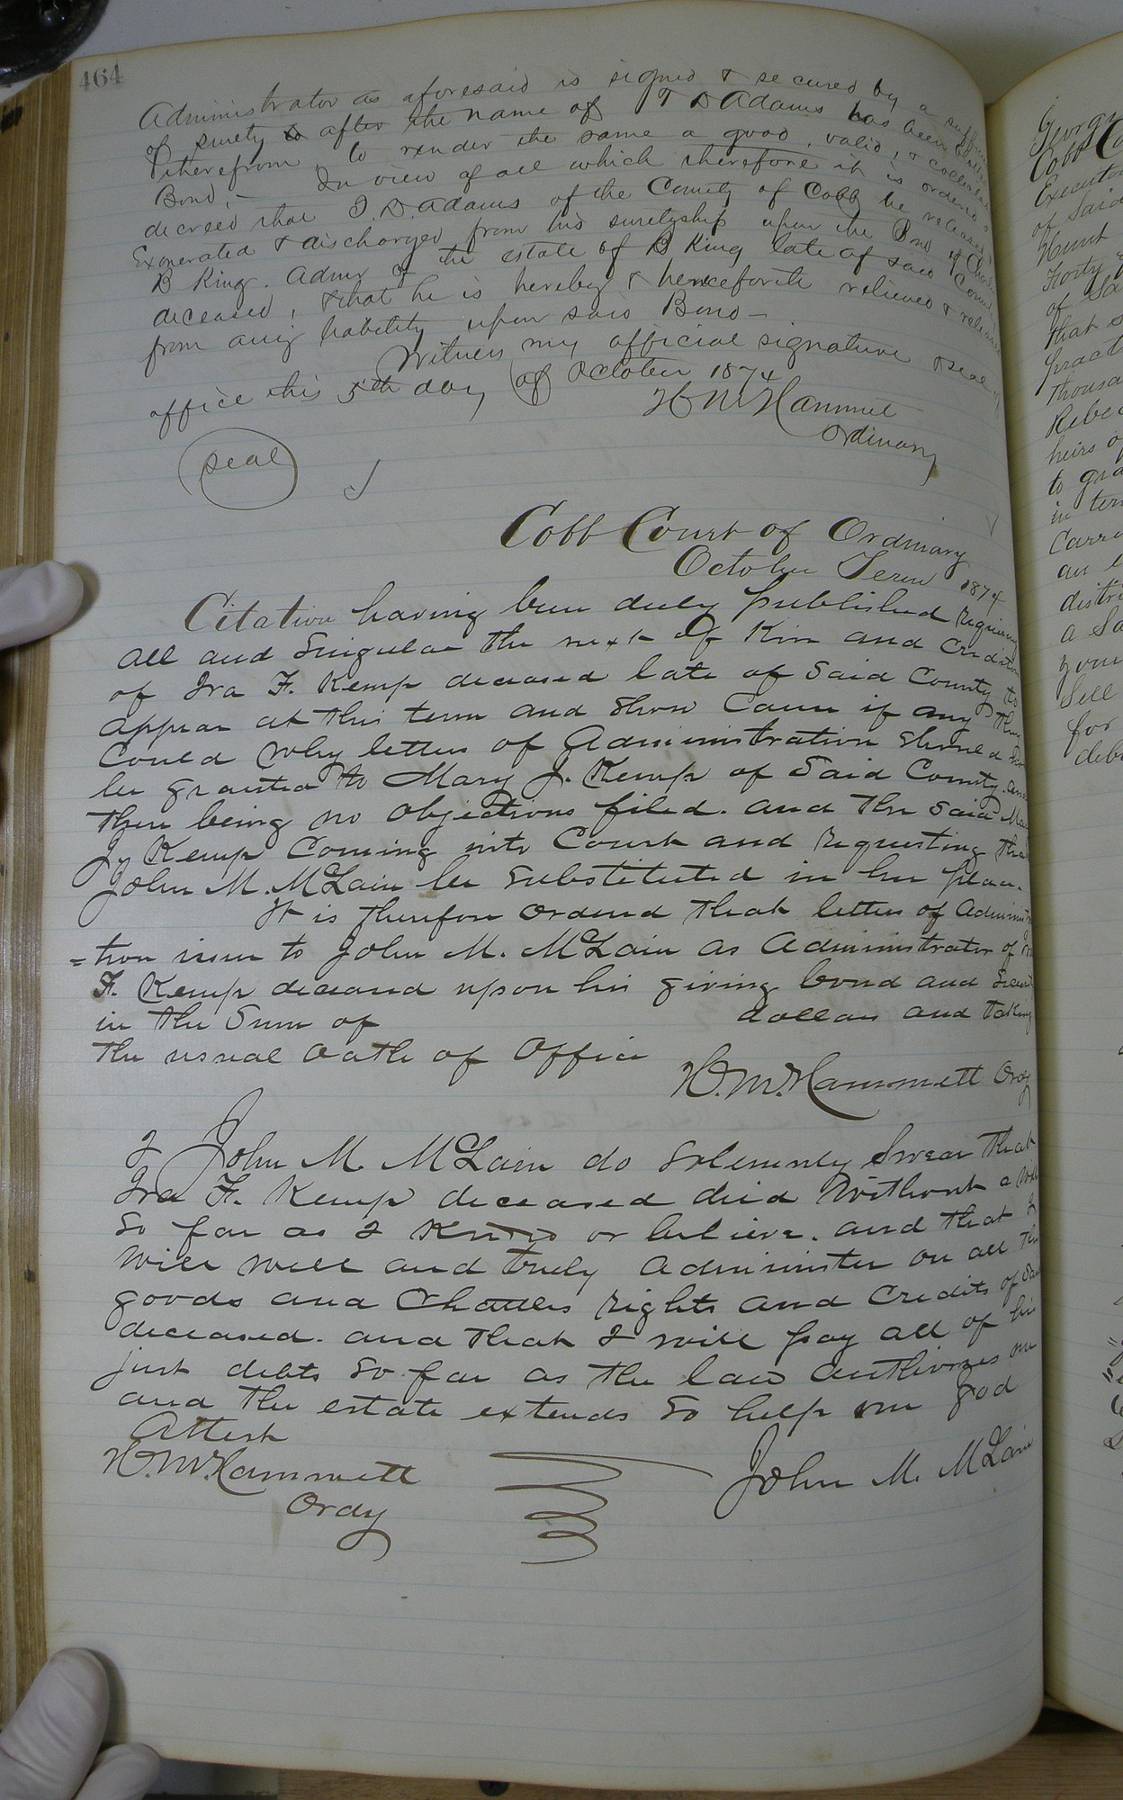 464
Administrator as aforesaid is signed & secured by a
of surety to after the name of T D Adams has been
therefrom to render the same a good, valid, &
Bond,- In view of all which therefore it is ordered
decreed that T. D. Adams of the County of Cobb be released
Exonerated & discharged from his suretyship upon the Bond of
B King. Admr of the estate of B King late of said County
deceased, & that he is hereby & henceforth relieved & released
from any liability upon said Bond-
Witness my official signature & seal of
office this 5th day of October 1874
H M Hammet
Ordinary
Seal
Cobb Court of Ordinary
October Term 1874
Citation having been duly published requiring
all and singular the next of Kin and creditors
of Ira F. Kemp deceased late of Said County to
appear at this term and Show Cause if any they
Could why letters of Administration should not
be granted to Mary J. Kemp of Said County. and
there being no objections filed. and the said Mary
J. Kemp Coming into Court and requesting that
John M. McLain be substituted in her place.
It is therefore ordered that letters of Administra
=tion issue to John M. McLain as Administrator of Ira
F. Kemp deceased upon his giving bond and Security
in the Sum of dollars and taking
the usual oath of office
H. M. Hammett Ordy
I John M. McLain do solemnly Swear that
Ira F. Kemp deceased died Without a Will
So far as I Know or believe. and that I
Will well and truly administer on all the
goods and Chattles rights and Credits of Said
deceased. and that I will pay all of his
just debts so far as the law authorizes me
and the estate extends So help me god
Attest
H. M. Hammett
Ordy
John M. McLain
Georgia
Cobb Co
Execut
of Said
Hunt
Forty
of Sa
that
fract
thousa
Rebec
heirs o
to gra
in ter
Carr
an
distri
a Sa
your
Sell
for
deb